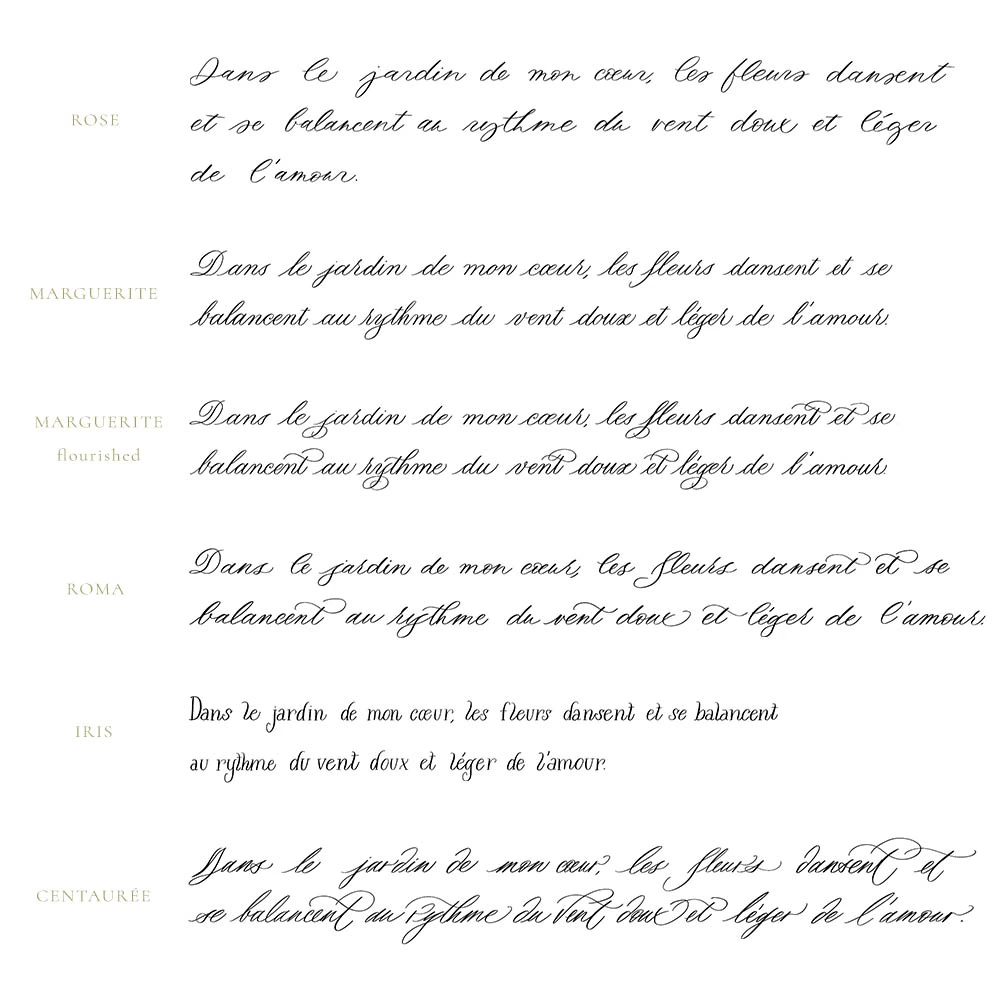 Dans le jardin de mon cœur, les fleurs dansent
ROSE
et se balancent au rythme du vent doux et léger
de l'amour.
Dans le jardin de mon cœur, les fleurs dansent et se
MARGUERITE
balancent au rythme du vent doux et léger de l'amour.
Dans le jardin de mon cœur, les fleurs dansent et se
MARGUERITE
flourished
balancent au rythme du vent doux et léger de l'amour.
Dans le jardin de mon cœur, les fleurs dansent et se
ROMA
balancent au rythme du vent doux et léger de l'amour.
Dans le jardin de mon cœur, les fleurs dansent et se balancent
IRIS
au rythme du vent doux et léger de l'amour.
Dans le jardin de mon cœur, les fleurs dansent et
CENTAURÉE
se balancent au rythme du vent doux et léger de l'amour.